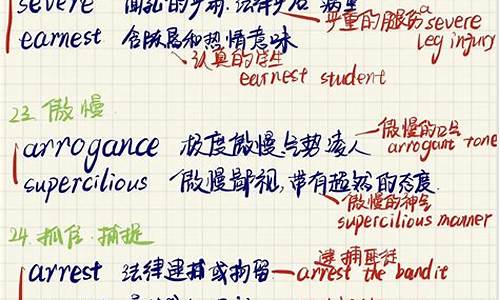 severe
严重的腿伤 a severe leg injury
earnest 含既焉和热情意味
认真的学生
earnest student
23. 傲慢
arrogance 极度傲慢，气势凌人
傲慢的口气
arrogant tone
supercilious 傲慢鄙视，带有超然的态度
傲慢的神气
supercilious manner
24. 抓住. 捕捉
arrest 法律逮捕或拘留
逮捕匪徒
arrest the bandit